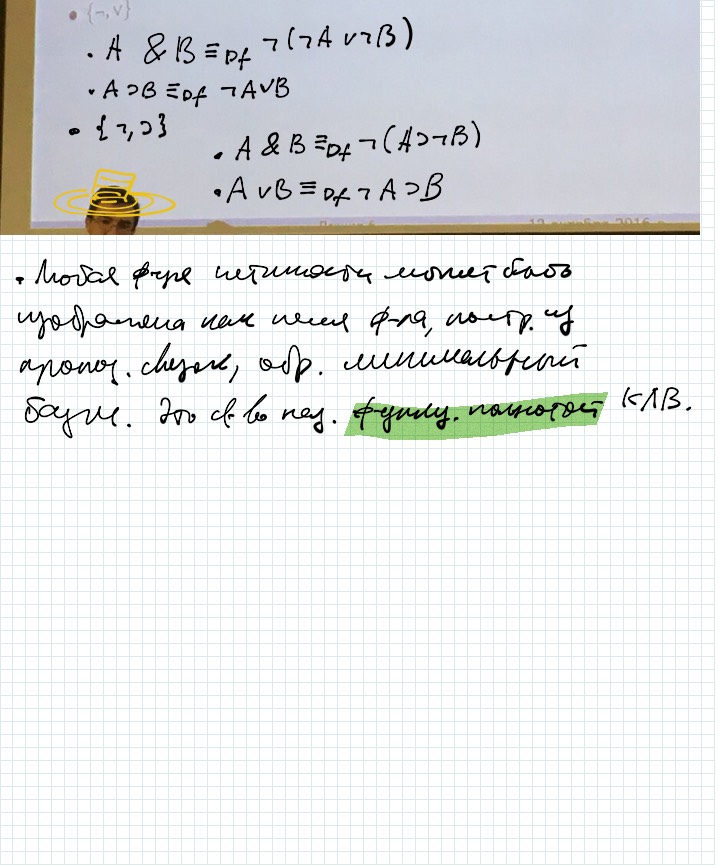 • {¬,∨}
• A & B ≡Df ¬(¬A ∨ ¬B)
• A ⊃ B ≡Df ¬A ∨ B
• {¬,⊃}
• A & B ≡Df ¬(A ⊃ ¬B)
• A ∨ B ≡Df ¬A ⊃ B
• Любая ф-ция истинности может быть
изображена как некая ф-ла, постр. из
пропоз. связок, обр. минимальный
базис. Это св-во наз. функц. полнотой КЛВ.